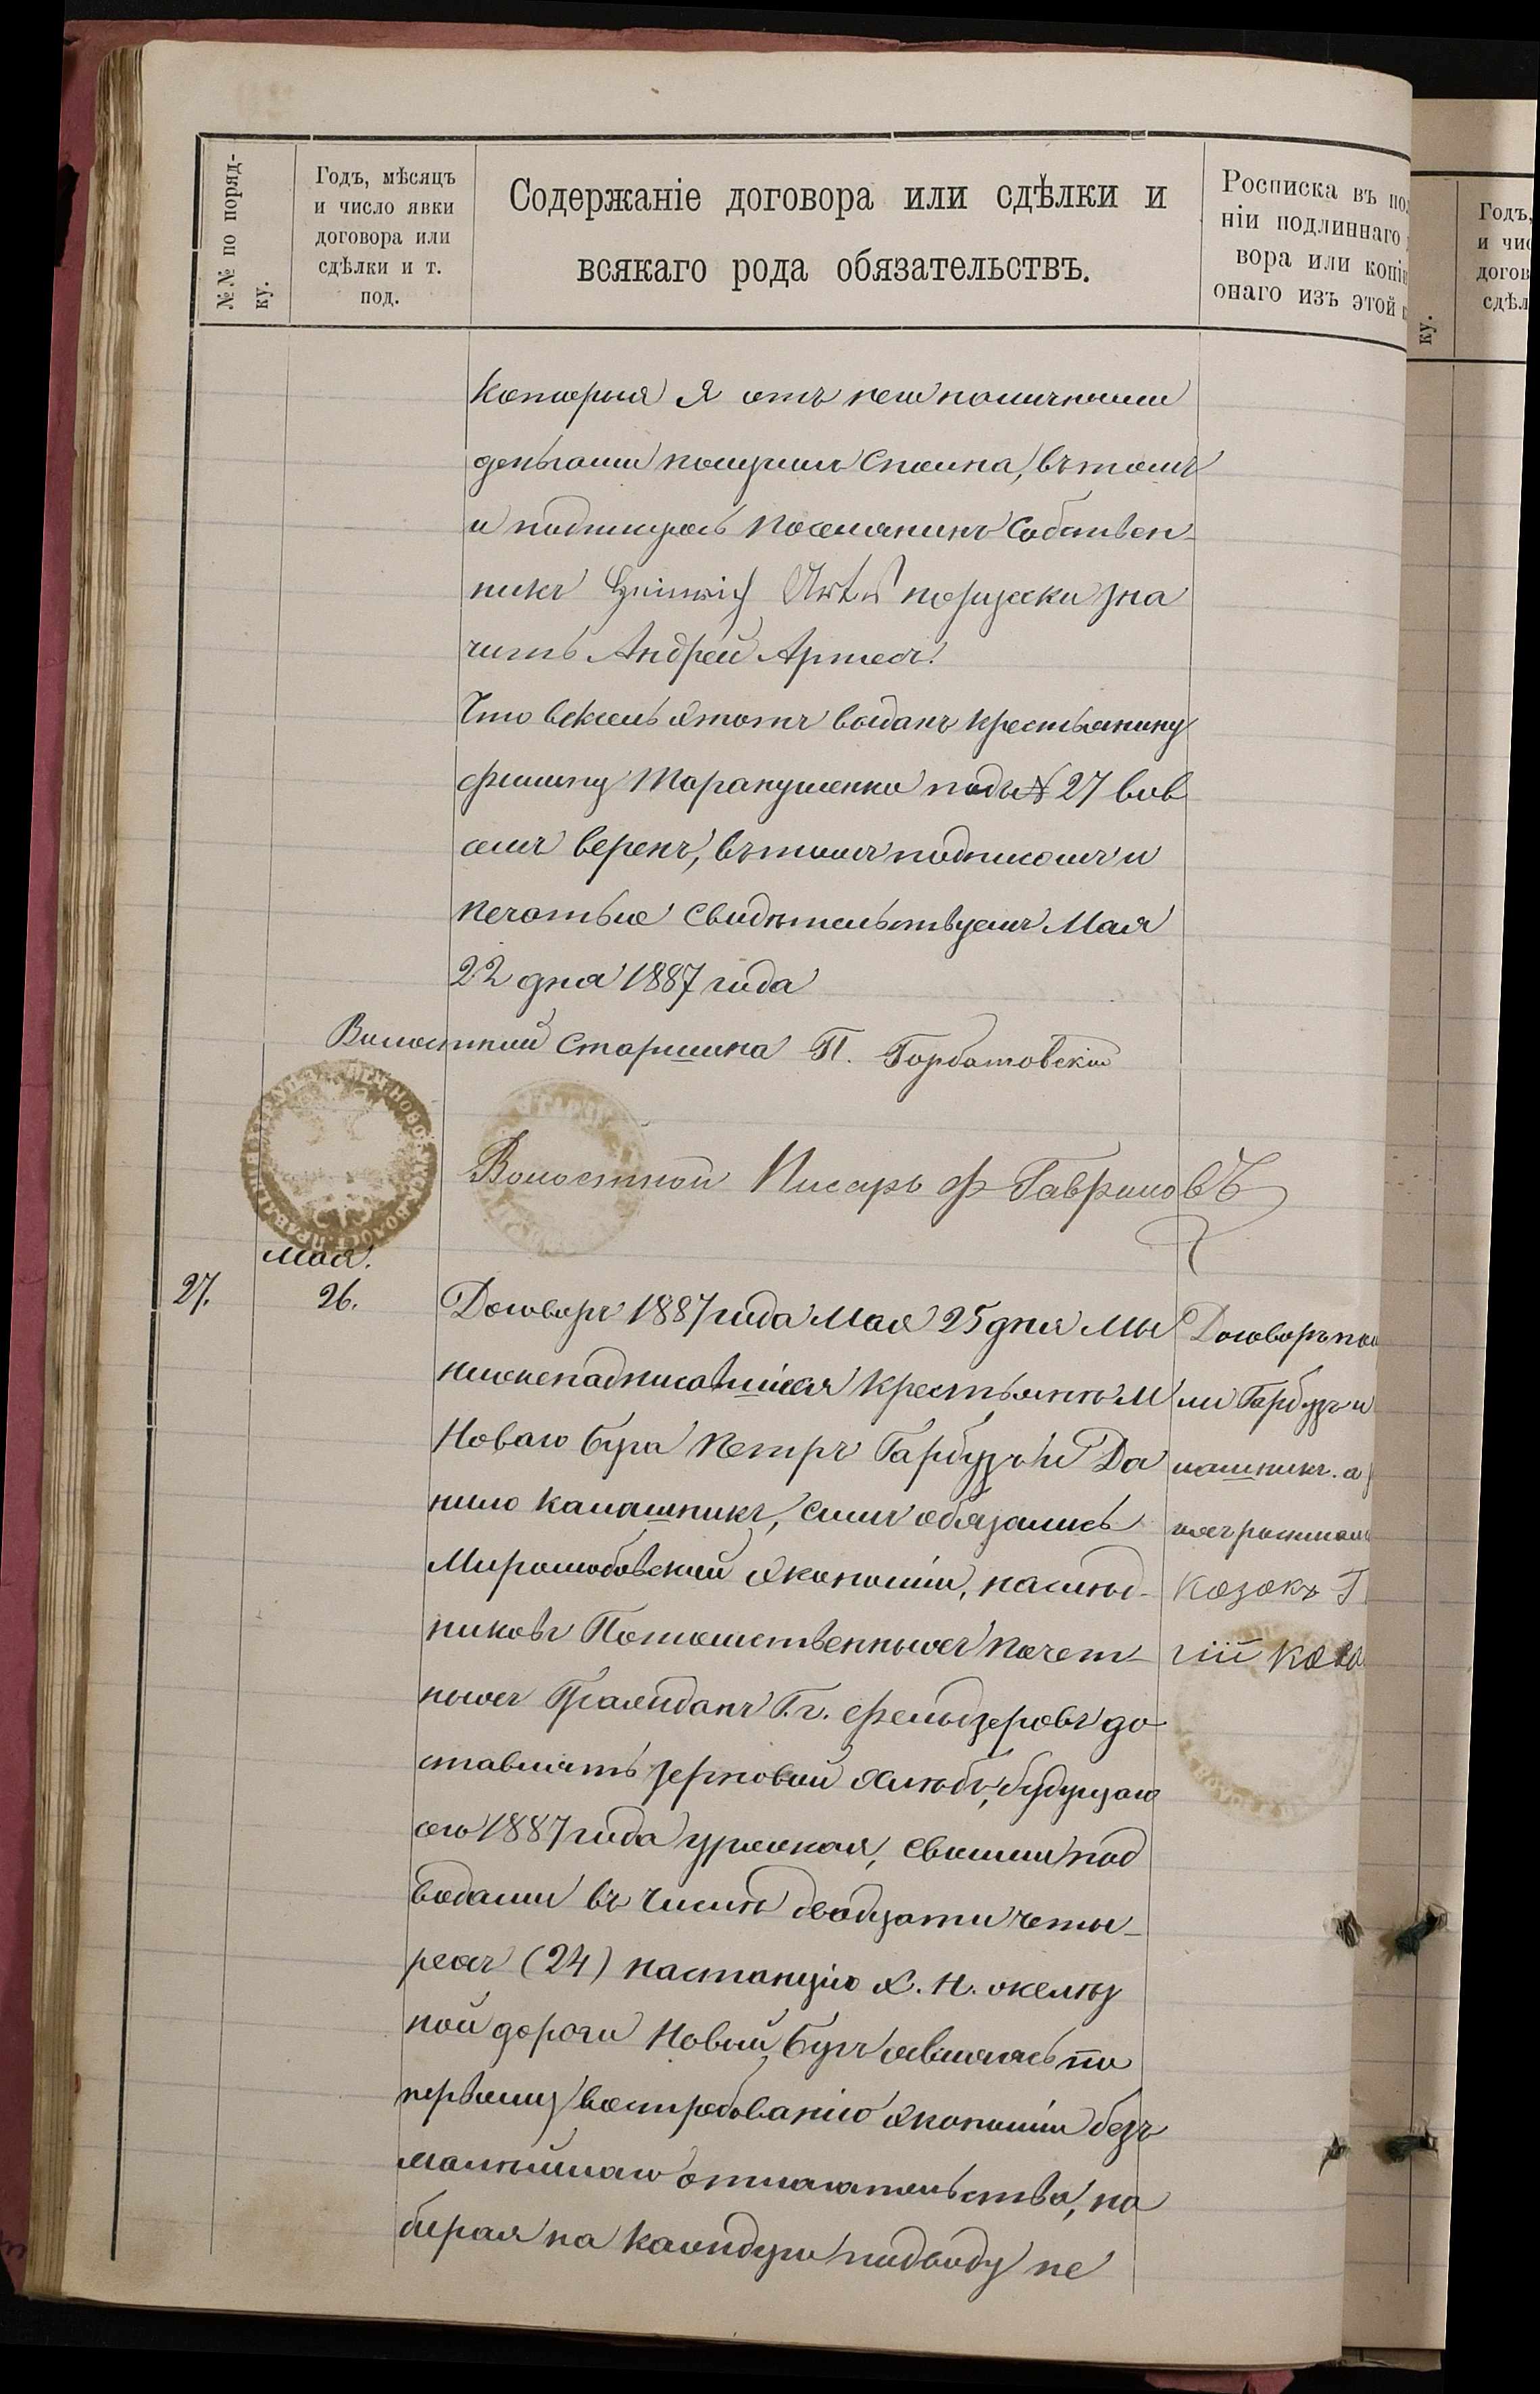 №№ по поряд-
ку.
Годъ, мѣсяцъ
и число явки
договора или
сдѣлки и т.
под.
Содержаніе договора или сдѣлки и
всякаго рода обязательствъ.
Росписка въ по
ніи подлиннаго
вора или копі
онаго изъ этой
которыя я отъ него наличными
деньгами получилъ сполна, въ томъ
и подписуюсь поселянинъ собствен-
никъ Heinrich по русски зна
читъ Андрей Артесъ.
Что вексель этотъ выданъ крестьянину
Филипу Таранушенко подъ № 27 вов
семъ веренъ, въ томъ подписомъ и
печатью свидѣтельствуемъ Мая
22 дня 1887 года
Волостной Старшина П. Горбатовскій
Волостной Писарь Ф Гавриловъ
мая.
27.
26.
Договоръ 1887 года Мая 25 дня мы
нижеподписавшіеся крестьяне М
Новаго Буга Петръ Гарбузъ и Да
нило Калашникъ, симъ обязались
Миролюбовской экономіи, наслѣд-
никовъ Потомственныхъ Почет-
ныхъ Гражданъ Г.г. Фельдзеровъ до
ставлять зерновой хлѣбъ, будущаго
сего 1887 года урожая, своими под
водами въ числѣ двадцати четы-
рехъ (24) на станцію Х. Н. желѣз
ной дороги Новый Бугъ являясь по
первому востребованію экономіи безъ
малѣйшаго отлагательства, на
бирая на каждую подводу не
Договоръ пол
ли Гарбузъ и
лашникъ. а
нихъ росписалс
Козакъ Г
гій Коза
Годъ,
и чис
догов
сдѣл
ку.